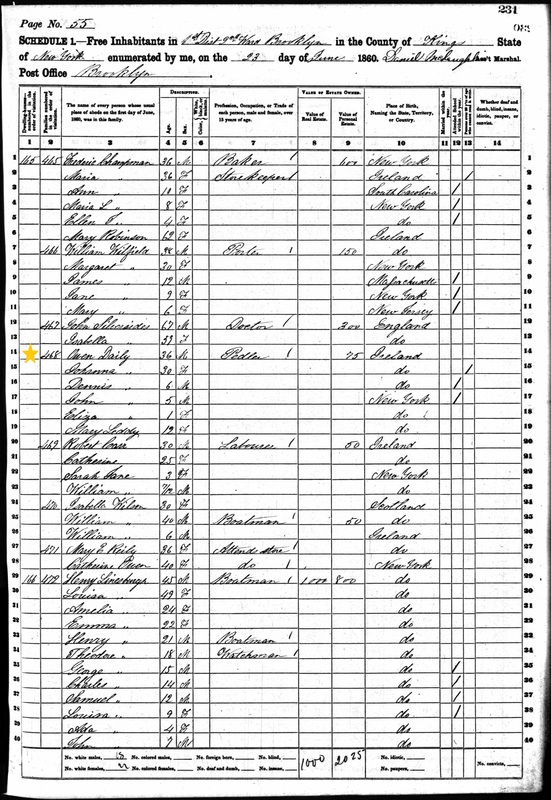 231
Page No. 55
SCHEDULE 1.—Free Inhabitants in 1st Dist 9th Ward Brooklyn in the County of Kings State
of New York enumerated by me, on the 23 day of June 1860. Daniel Ass't Marshal.
Post Office Brooklyn
Dwelling-houses numbered in the order of visitation.
Families numbered in the order of visitation.
The name of every person whose usual place of abode on the first day of June, 1860, was in this family.
DESCRIPTION.
Age.
Sex.
Profession, Occupation, or Trade of each person, male and female, over 15 years of age.
VALUE OF ESTATE OWNED.
Value of Real Estate.
Value of Personal Estate.
Place of Birth, Naming the State, Territory, or Country.
Married within the year.
Attended School within the year.
Whether deaf and dumb, blind, insane, idiotic, pauper, or convict.
1 2 3 4 5 6 7 8 9 10 11 12 13 14
1 165 465 Frederic Chapman 36 M Baker / 600 New York 1
2 Maria " 36 F Storekeeper / Ireland / 2
3 Ann " 18 F South Carolina / 3
4 Maria L " 8 F New York / 4
5 Ellen F. " 4 F do / 5
6 Mary Robinson 62 F Ireland 6
7 466 William Wilfield 38 M Porter / 150 do 7
8 Margaret " 30 F New York 8
9 James " 12 M Massachusetts / 9
10 Jane " 9 F New York / 10
11 Mary " 6 F New Jersey / 11
12 467 John 67 M Doctor / 300 England 12
13 Isabella " 59 F do 13
14 468 Owen Daily 36 M Pedler / 75 Ireland 14
15 Johanna " 30 F do / 15
16 Dennis " 6 M do / 16
17 John " 5 M New York / 17
18 Eliza " 1 F do 18
19 Mary 12 F do 19
20 469 Robert Carr 30 M Labourer / 50 Ireland 20
21 Catherine " 25 F do 21
22 Sarah Jane " 3 F New York 22
23 William " M do 23
24 470 Isabella Wilson 30 F Scotland 24
25 William " 40 M Boatman / 50 do 25
26 William " 6 M Ireland 26
27 471 Mary E. Reily 36 F Attend store / do 27
28 Catherine 40 F do / New York 28
29 166 472 Henry 45 M Boatman / 1000 800 do 29
30 Louisa " 42 F do 30
31 Amelia " 24 F do 31
32 Emma " 22 F do 32
33 Henry " 21 M Boatman / do 33
34 Theodore " 18 M Watchman / do 34
35 George " 15 M do / 35
36 Charles " 14 M do / 36
37 Samuel " 12 M do / 37
38 Louisa " 9 F do / 38
39 Ada " 4 F do 39
40 John " 7 M do 40
No. white males, 18 No. colored males, No. foreign born, No. blind, 1000 2025 No. idiotic, No. convicts,
No. white females, 22 No. colored females, No. deaf and dumb, No. insane, No. paupers,